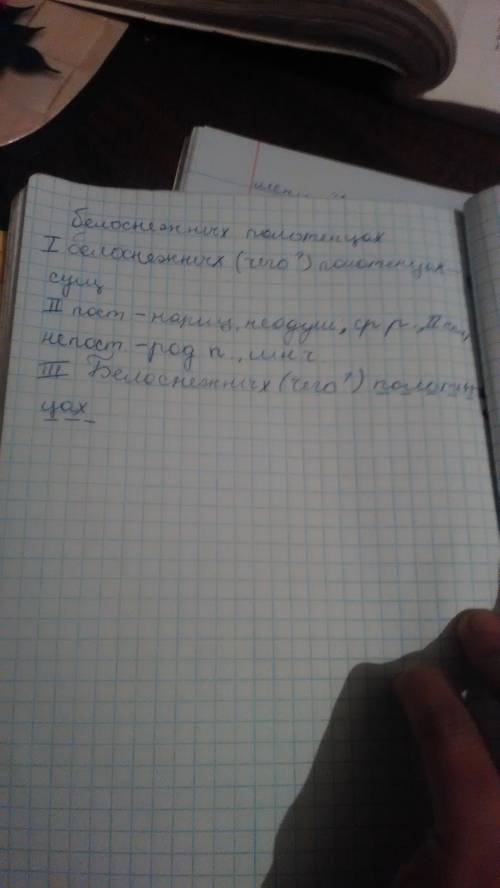 белоснежных полотенцах
I белоснежных (чего?) полотенцах
сущ
II пост - нариц, неодуш, ср р., II скл,
непост - род п., мн ч
III Белоснежных (чего?) полотен-
цах